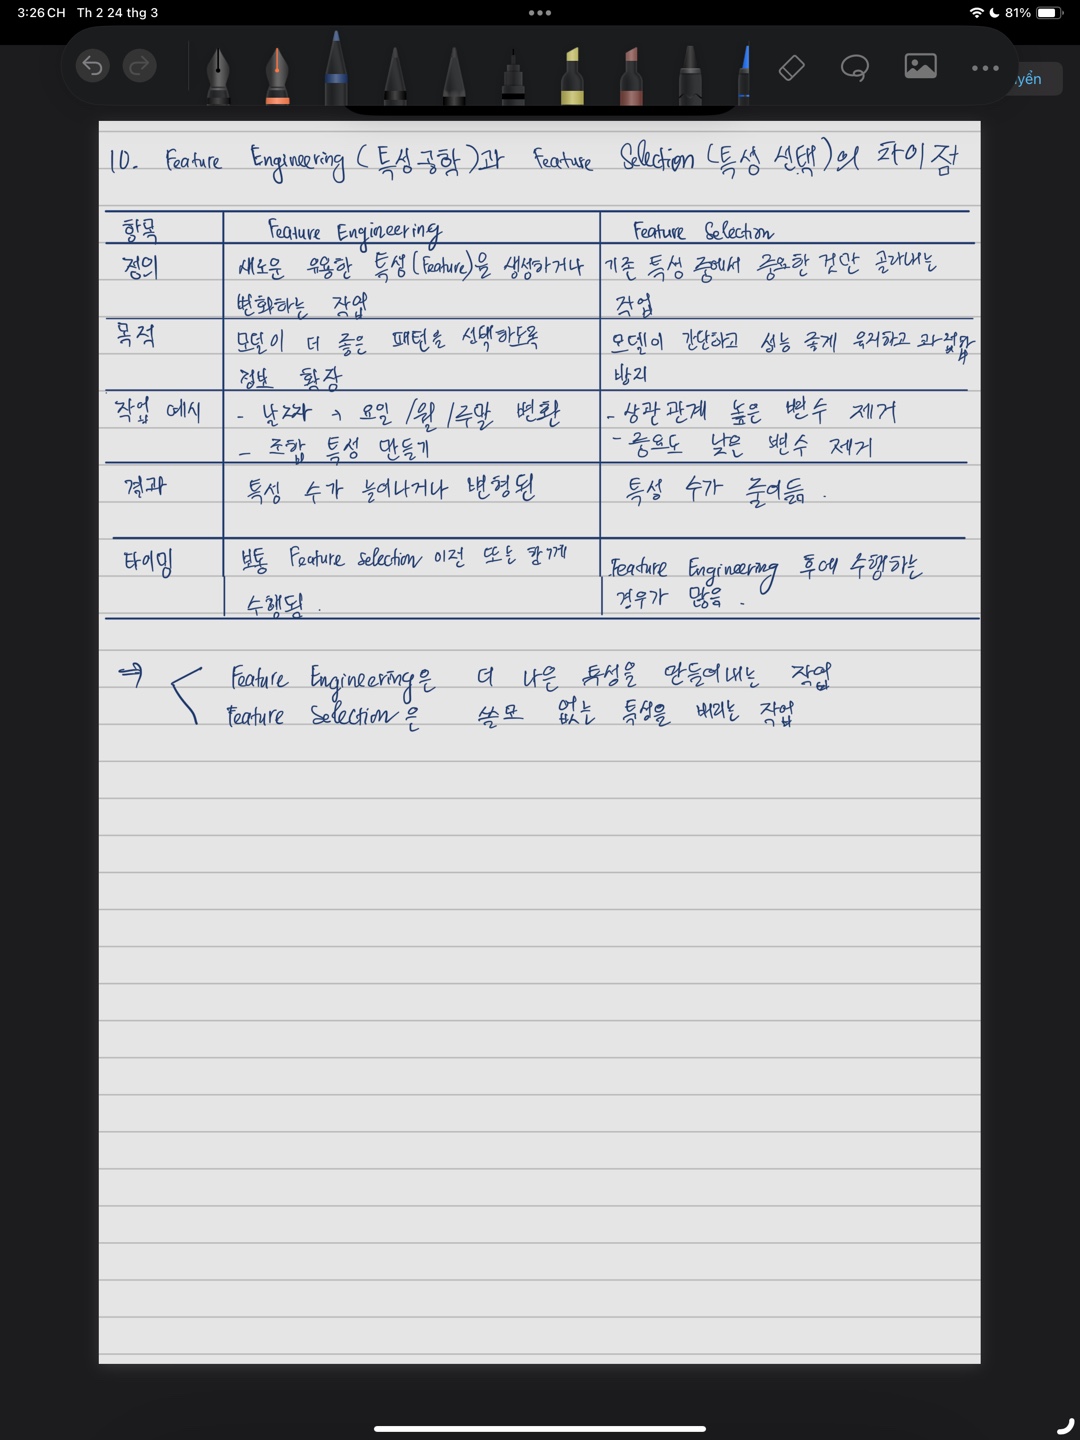 3:26 CH Th 2 24 thg 3
81%
yển
10. Feature Engineering (특성공학)과 Feature Selection (특성 선택)의 차이점
항목 Feature Engineering Feature Selection
정의 새로운 유용한 특성(Feature)을 생성하거나 기존 특성 중에서 중요한 것만 골라내는
변화하는 작업 작업
목적 모델이 더 좋은 패턴을 선택하도록 모델이 간단하고 성능 좋게 유지하고 과적합
정보 확장 방지
작업 예시 - 날짜 → 요일/월/주말 변환 - 상관관계 높은 변수 제거
- 조합 특성 만들기 - 중요도 낮은 변수 제거
결과 특성 수가 늘어나거나 변형된 특성 수가 줄어듦.
타이밍 보통 Feature selection 이전 또는 함께 Feature Engineering 후에 수행하는
수행됨. 경우가 많음.
⇒ Feature Engineering은 더 나은 특성을 만들어내는 작업
Feature Selection은 쓸모 없는 특성을 버리는 작업